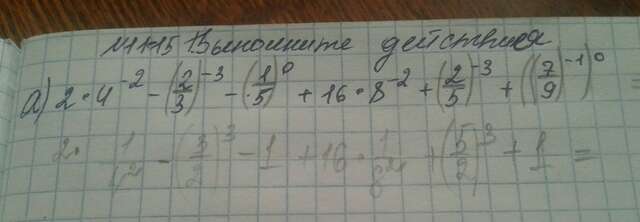 №1115 Выполните действия
а) 2·4⁻² - (2/3)⁻³ - (1/5)⁰ + 16·8⁻² + (2/5)⁻³ + ((7/9)⁻¹)⁰ =
2· 1/4² - (3/2)³ - 1 + 16· 1/8² + (5/2)³ + 1 =